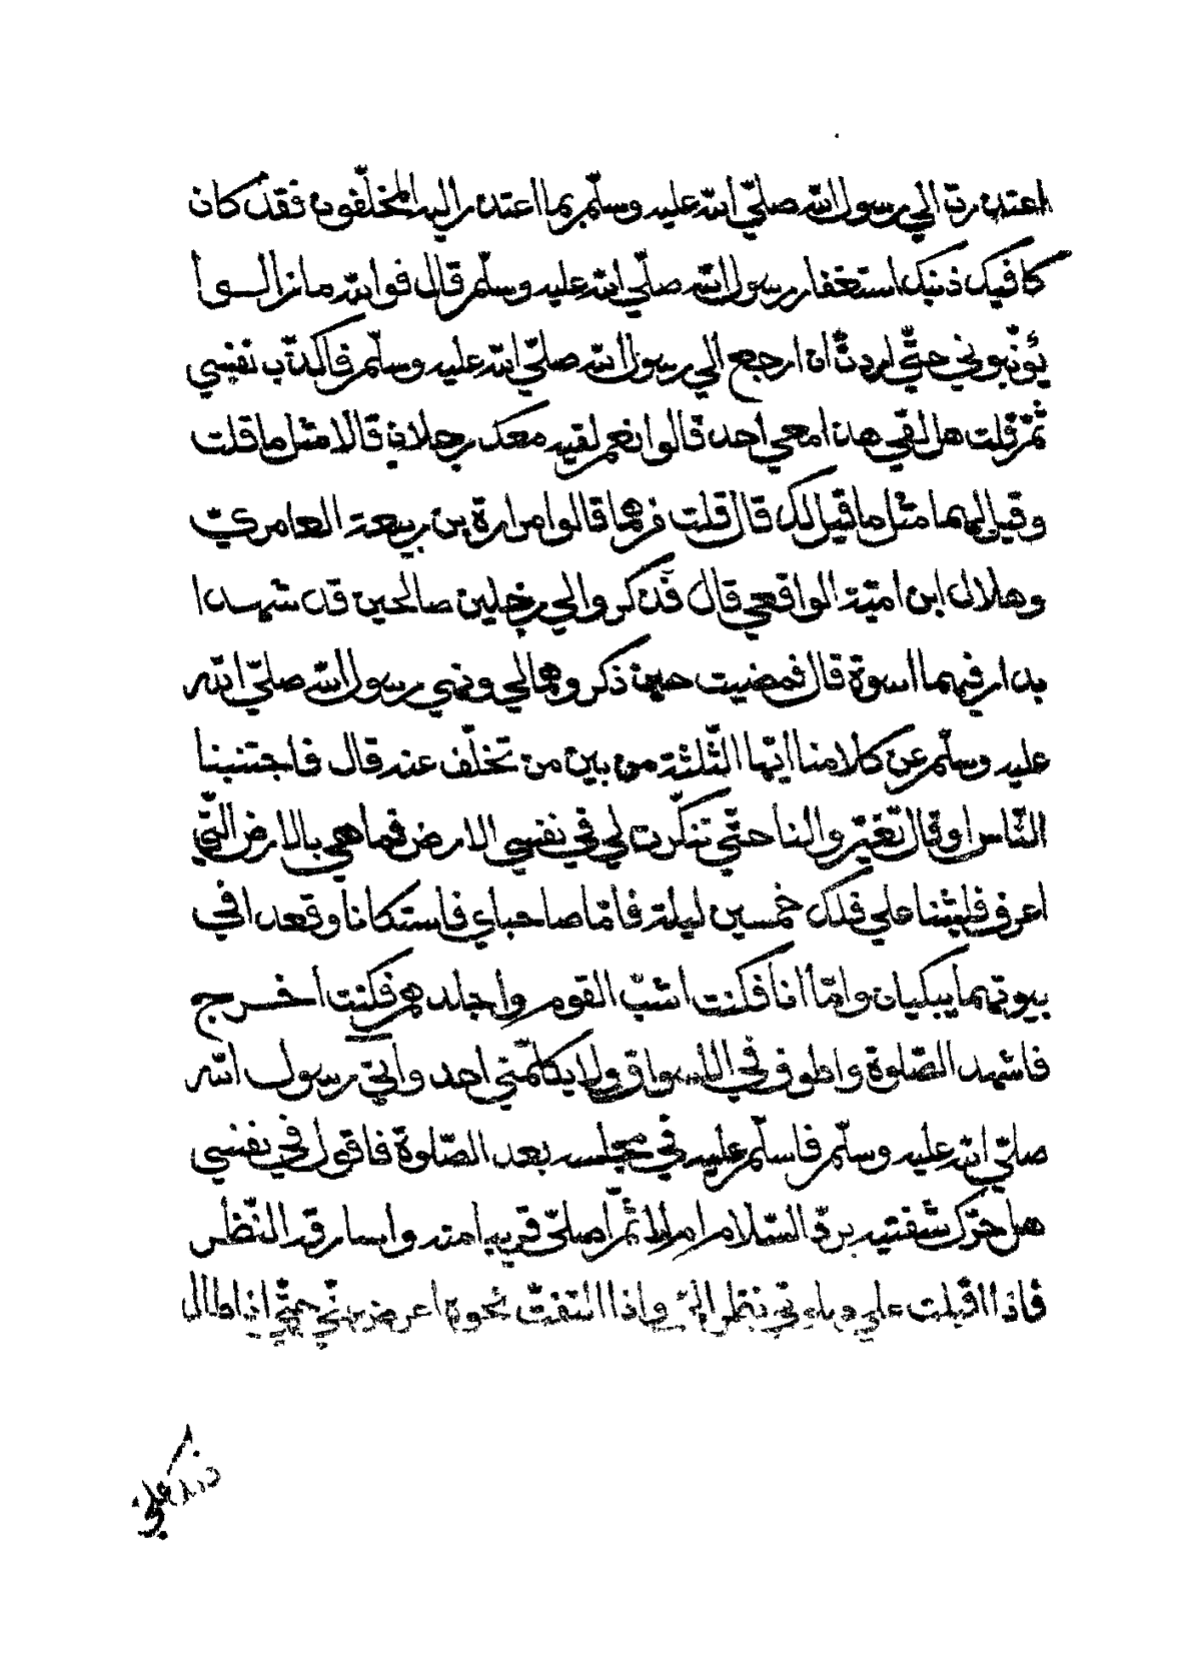 اعتذرت الي رسول الله صلّي الله عليه وسلّم بما اعتذر اليه المخلّفون فقد كان
كافيك ذنبك استغفار رسول الله صلّي الله عليه وسلّم قال فوالله مازالوا
يؤنّبوني حتّي اردت ان ارجع الي رسول الله صلّي الله عليه وسلّم فاكذّب نفسي
ثمّ قلت هل لقي هذا معي احد قالوا نعم لقيه معك رجلان قالا مثل ما قلت
وقيل لهما مثل ما قيل لك قال قلت من هما قالوا مرارة بن ربيعة العامريّ
وهلال ابن اميّة الواقعي قال فذكروا لي رجلين صالحين قد شهدا
بدار فيهما اسوة قال فمضيت حين ذكروهما لي ونهي رسول الله صلّي الله
عليه وسلّم عن كلامنا ايّها الثّلثة من بين من تخلّف عنه قال فاجتنبنا
النّاس او قال تغيّروا لنا حتّي تنكّرت لي في نفسي الارض فما هي بالارض الّتي
اعرف فلبثنا علي ذلك خمسين ليلة فامّا صاحباي فاستكانا وقعدا في
بيوتهما يبكيان وامّا انا فكنت اشبّ القوم واجلدهم فكنت اخرج
فاشهد الصّلوة واطوف في الاسواق ولا يكلّمني احد وآتي رسول الله
صلّي الله عليه وسلّم فاسلّم عليه في مجلسه بعد الصّلوة فاقول في نفسي
هل حرّك شفتيه بردّ السّلام ام لا ثمّ اصلّي قريبا منه واسارقه النّظر
فاذا اقبلت علي صلوتي نظر اليّ واذا التفتّ نحوه اعرض عنّي حتّي اذا طال